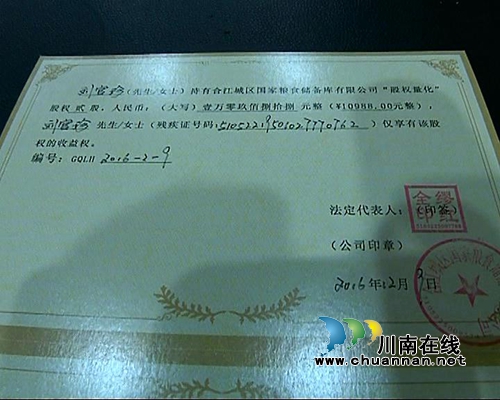 刘官珍(先生/女士)持有合江城区国家粮食储备库有限公司“股权量化”
股权贰股,人民币:(大写)壹万零玖佰捌拾捌 元整(¥10988.00元整),
刘官珍 先生/女士(残疾证号码: ) 仅享有该股
权的收益权。
编号:GQLH 2016-2-9
法定代表人:(印签)
(公司印章)
2016年12月 日
川南在线
www.chuannan.net